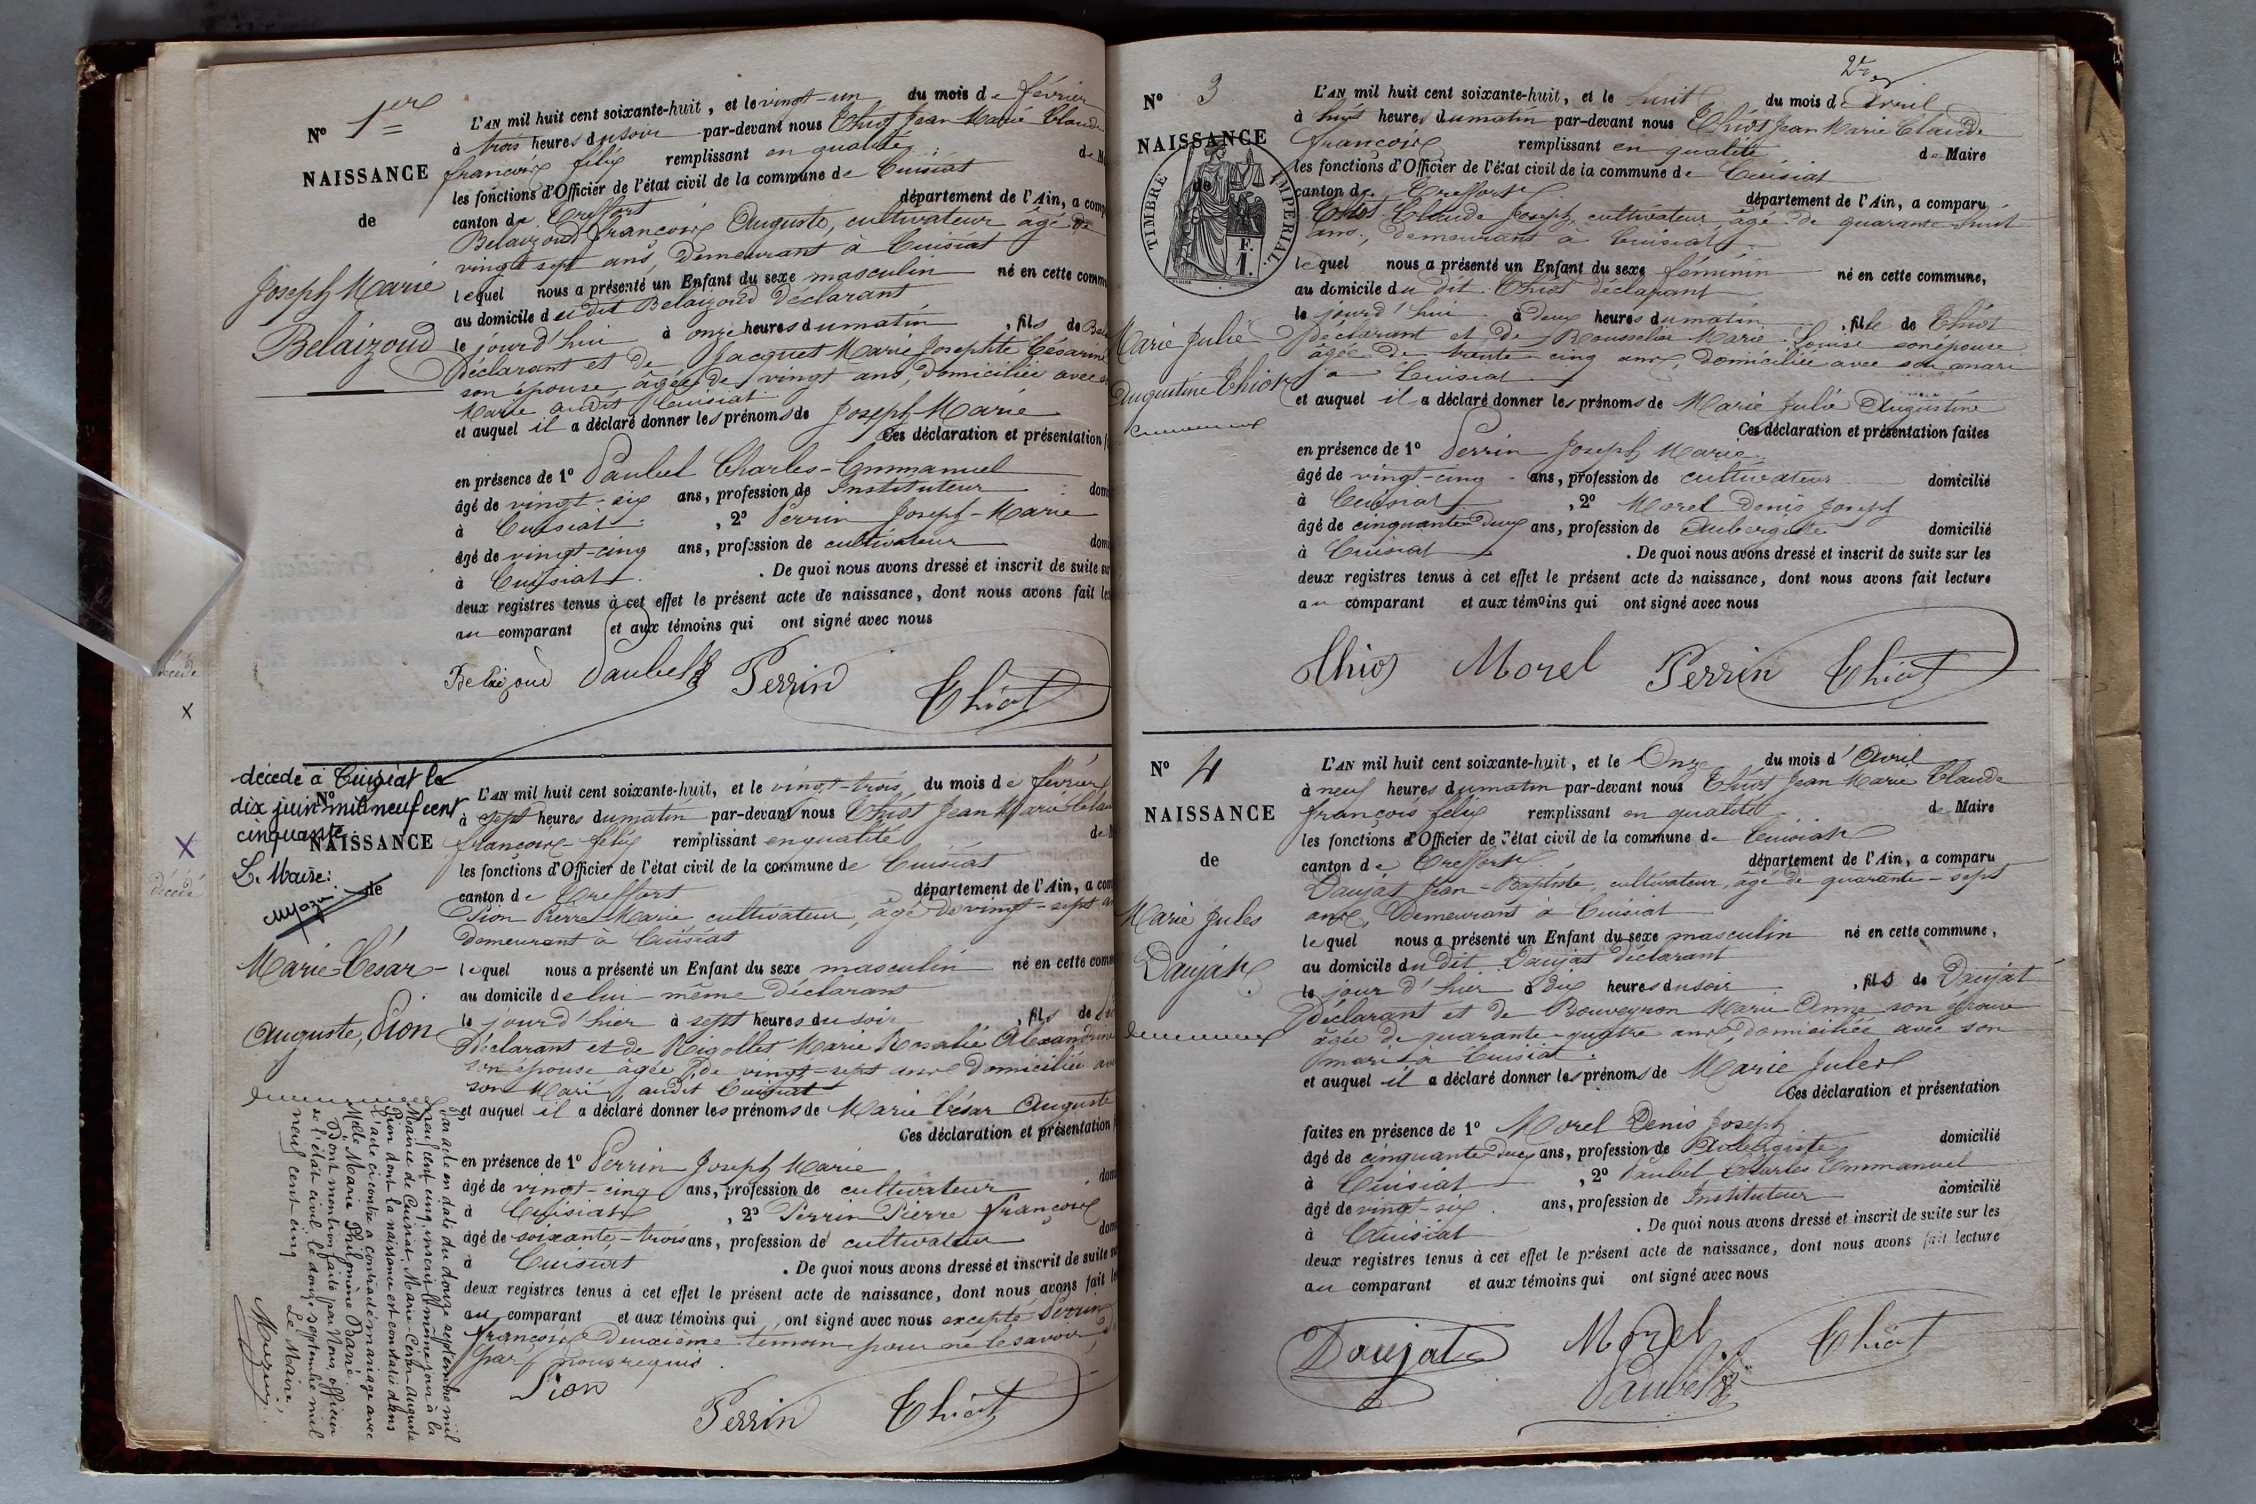 Nº 1er
NAISSANCE
de
Joseph Marie
Belaizoud
L'AN mil huit cent soixante-huit, et le vingt-un du mois de février
à trois heures du soir par-devant nous Thiot Jean Marie Claude
françois félix remplissant en qualité de M
les fonctions d'Officier de l'état civil de la commune de Cuisiat
canton de Treffort département de l'Ain, a comp
Belaizoud françois Auguste, cultivateur âgé de
vingt sept ans, demeurant à Cuisiat
lequel nous a présenté un Enfant du sexe masculin né en cette comm
au domicile du dit Belaizoud déclarant
le jourd'hui à onze heures du matin, fils de Bel
déclarant et de Jacquet Marie Josephte Césarine
son épouse âgée de vingt ans, domiciliée avec
Marie audit Cuisiat
et auquel il a déclaré donner les prénoms de Joseph Marie
Ces déclaration et présentation
en présence de 1º Paubel Charles-Emmanuel
âgé de vingt-six ans, profession de Instituteur dom
à Cuisiat, 2º Perrin Joseph-Marie
âgé de vingt-cinq ans, profession de cultivateur dom
à Cuisiat. De quoi nous avons dressé et inscrit de suite su
deux registres tenus à cet effet le présent acte de naissance, dont nous avons fait le
au comparant et aux témoins qui ont signé avec nous
Belaizoud Paubel Perrin Thiot
décédé à Cuisiat le
dix juin mil neuf cent
cinquante.
Le Maire:
Nº
NAISSANCE
de
Marie-César-
Auguste, Pion
L'AN mil huit cent soixante-huit, et le vingt-trois du mois de février
à sept heures du matin par-devant nous Thiot Jean Marie Clau
françois-félix remplissant en qualité de M
les fonctions d'Officier de l'état civil de la commune de Cuisiat
canton de Treffort département de l'Ain, a com
Pion Pierre Marie cultivateur, âgé de vingt-sept an
demeurant à Cuisiat
lequel nous a présenté un Enfant du sexe masculin né en cette comm
au domicile de lui-même déclarant
le jour d'hier à sept heures du soir, fils de Pi
déclarant et de Rigollet Marie Rosalie Alexandrine
son épouse âgée de vingt-sept ans domiciliée av
son Mari, audit Cuisiat
et auquel il a déclaré donner les prénoms de Marie César Auguste
Ces déclaration et présentation
en présence de 1º Perrin Joseph Marie
âgé de vingt-cinq ans, profession de cultivateur dom
à Cuisiat, 2º Perrin Pierre françois
âgé de soixante-trois ans, profession de cultivateur dom
à Cuisiat. De quoi nous avons dressé et inscrit de suite su
deux registres tenus à cet effet le présent acte de naissance, dont nous avons fait le
au comparant et aux témoins qui ont signé avec nous excepté Perrin
françois deuxième témoin pour ne le savoir, de
par nous requis.
Pion Perrin Thiot
Par acte en date du douze septembre mil
neuf cent cinq, inscrit le même jour à la
Mairie de Cuisiat, Marie-César-Auguste
Pion dont la naissance est constatée dans
l'acte ci-contre a contracté mariage avec
Melle Marie Philomène Barré.
Dont mention faite par Nous, officier
de l'état civil, le douze septembre mil
neuf cent cinq
Le Maire,
décédé
x
X
décédé
2e
Nº 3
NAISSANCE
de
TIMBRE IMPERIAL
F.
1.
Marie Julie
Augustine Thiot
L'AN mil huit cent soixante-huit, et le huit du mois d'Avril
à huit heures du matin par-devant nous Thiot Jean Marie Claude
françois remplissant en qualité de Maire
les fonctions d'Officier de l'état civil de la commune de Cuisiat
canton de Treffort département de l'Ain, a comparu
Thiot Claude Joseph cultivateur âgé de quarante huit
ans, demeurant à Cuisiat
lequel nous a présenté un Enfant du sexe féminin né en cette commune,
au domicile du dit Thiot déclarant
le jourd'hui à deux heures du matin, fille de Thiot
déclarant et de Rousselier Marie Louise son épouse
âgée de trente-cinq ans, domiciliée avec son mari
à Cuisiat
et auquel il a déclaré donner les prénoms de Marie Julie Augustine
Ces déclaration et présentation faites
en présence de 1º Perrin Joseph Marie
âgé de vingt-cinq ans, profession de cultivateur domicilié
à Cuisiat, 2º Morel Denis Joseph
âgé de cinquante deux ans, profession de Aubergiste domicilié
à Cuisiat. De quoi nous avons dressé et inscrit de suite sur les
deux registres tenus à cet effet le présent acte de naissance, dont nous avons fait lecture
au comparant et aux témoins qui ont signé avec nous
Thiot Morel Perrin Thiot
Nº 4
NAISSANCE
de
Marie Jules
Daujat
L'AN mil huit cent soixante-huit, et le Onze du mois d'Avril
à neuf heures du matin par-devant nous Thiot Jean Marie Claude
françois félix remplissant en qualité de Maire
les fonctions d'Officier de l'état civil de la commune de Cuisiat
canton de Treffort département de l'Ain, a comparu
Daujat Jean-Baptiste, cultivateur, âgé de quarante-sept
ans, demeurant à Cuisiat
lequel nous a présenté un Enfant du sexe masculin né en cette commune,
au domicile du dit Daujat déclarant
le jour d'hier à dix heures du soir, fils de Daujat
déclarant et de Bouveyron Marie Anne son épouse
âgée de quarante-quatre ans, domiciliée avec son
mari à Cuisiat.
et auquel il a déclaré donner les prénoms de Marie Jules
Ces déclaration et présentation
faites en présence de 1º Morel Denis Joseph
âgé de cinquante deux ans, profession de Aubergiste domicilié
à Cuisiat, 2º Paubel Charles Emmanuel
âgé de vingt-six ans, profession de Instituteur domicilié
à Cuisiat. De quoi nous avons dressé et inscrit de suite sur les
deux registres tenus à cet effet le présent acte de naissance, dont nous avons fait lecture
au comparant et aux témoins qui ont signé avec nous
Daujat Morel Thiot
Paubel